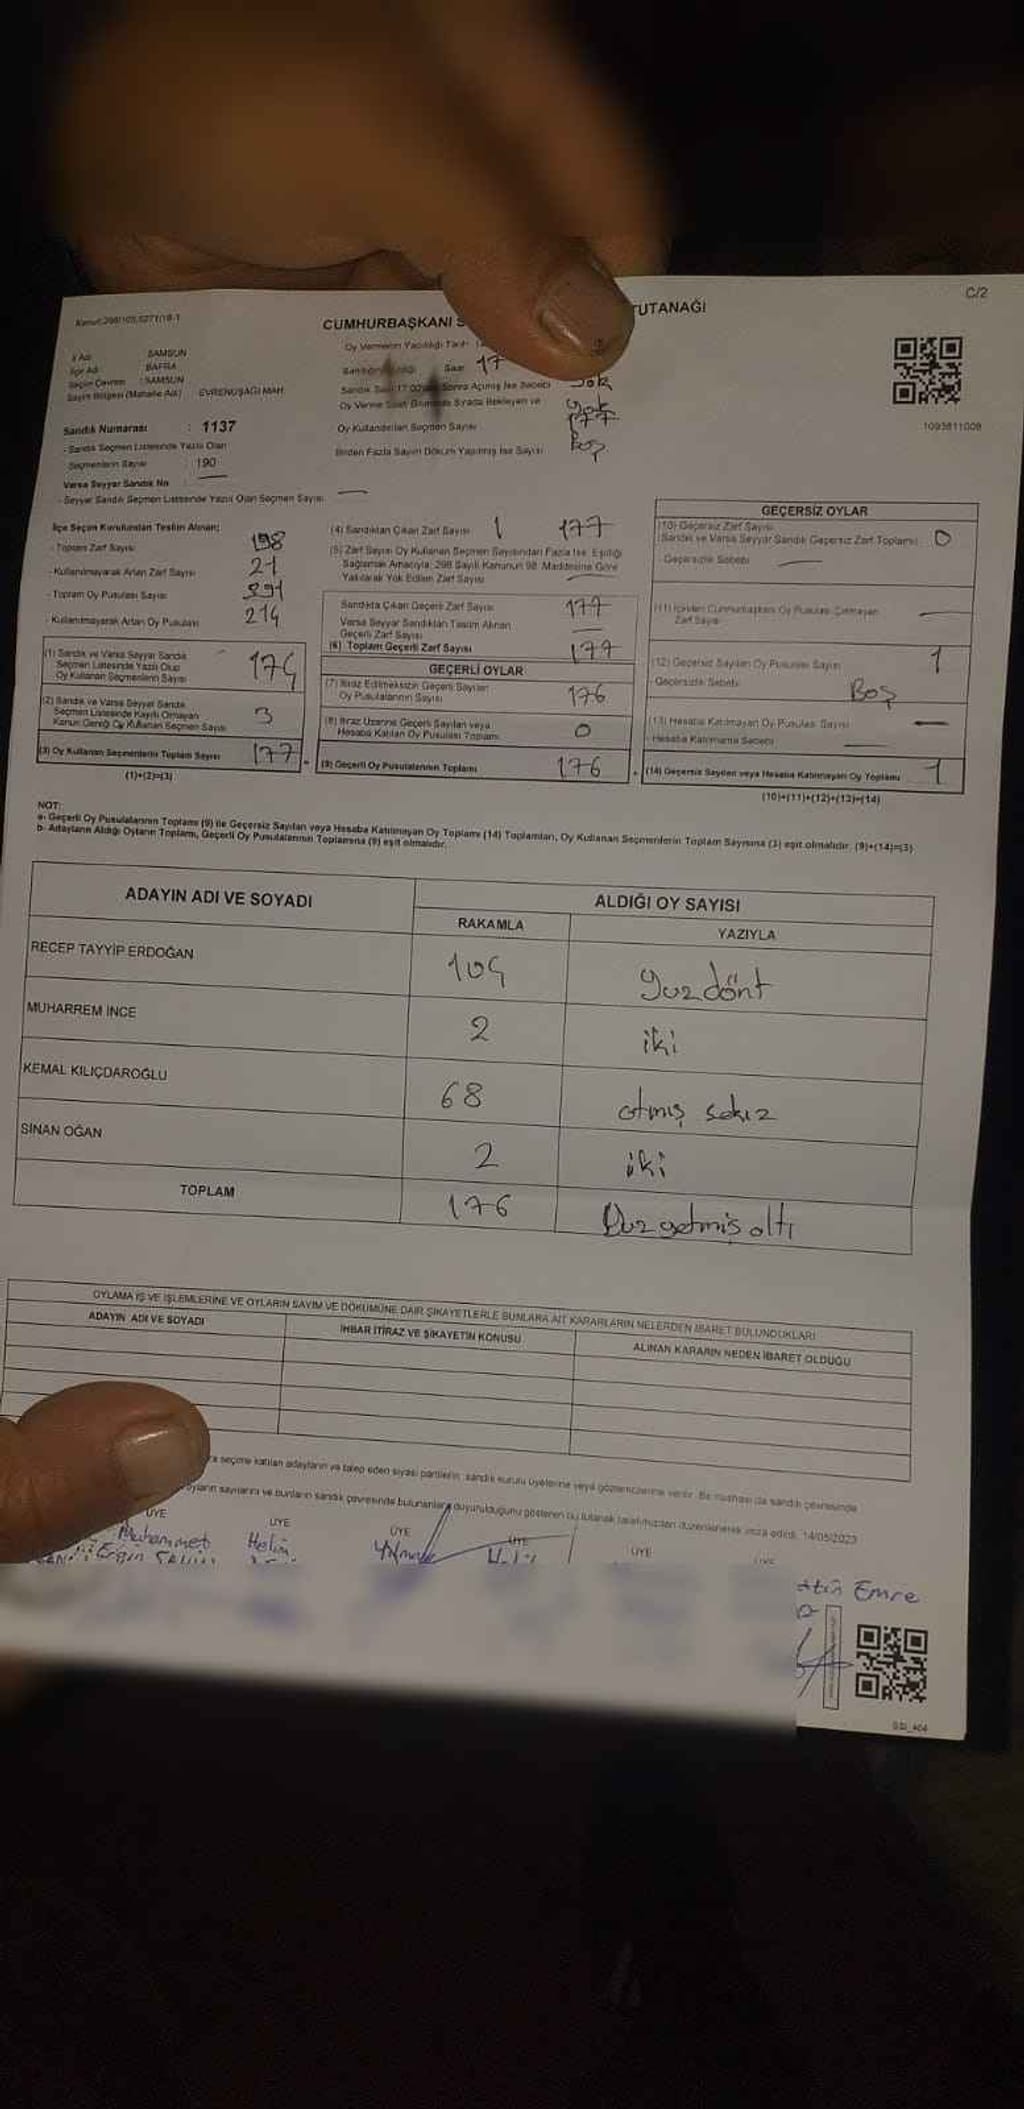 C/2
Kanun:298/105,6271/18-1
CUMHURBAŞKANI S
TUTANAĞI
Oy Vermenin Yapıldığı Tarih
İl Adı SAMSUN
İlçe Adı BAFRA
Seçim Çevresi : SAMSUN
Seçim Bölgesi (Mahalle Adı) EVRENUŞAĞI MAH.
Saat 17
Sandık Saat 17.00'den Sonra Açılmış İse Sebebi Yok
Oy Verme Saati Sırada Bekleyen ve Yok
Oy Kullandırılan Seçmen Sayısı 177
Birden Fazla Sayım Döküm Yapılmış İse Sayısı Boş
1093811008
Sandık Numarası : 1137
- Sandık Seçmen Listesinde Yazılı Olan
Seçmenlerin Sayısı : 190
Varsa Seyyar Sandık No
- Seyyar Sandık Seçmen Listesinde Yazılı Olan Seçmen Sayısı
İlçe Seçim Kurulundan Teslim Alınan;
- Toplam Zarf Sayısı 198
- Kullanılmayarak Artan Zarf Sayısı 21
- Toplam Oy Pusulası Sayısı 391
- Kullanılmayarak Artan Oy Pusulası 214
(1) Sandık ve Varsa Seyyar Sandık
Seçmen Listesinde Yazılı Olup
Oy Kullanan Seçmenlerin Sayısı 174
(2) Sandık ve Varsa Seyyar Sandık
Seçmen Listesinde Kayıtlı Olmayan
Kanun Gereği Oy Kullanan Seçmen Sayısı 3
(3) Oy Kullanan Seçmenlerin Toplam Sayısı 177
(1)+(2)=(3)
(4) Sandıktan Çıkan Zarf Sayısı 177
(5) Zarf Sayısı Oy Kullanan Seçmen Sayısından Fazla İse, Eşitliği
Sağlamak Amacıyla, 298 Sayılı Kanunun 98. Maddesine Göre
Yakılarak Yok Edilen Zarf Sayısı
Sandıkta Çıkan Geçerli Zarf Sayısı 177
Varsa Seyyar Sandıktan Teslim Alınan
Geçerli Zarf Sayısı
(6) Toplam Geçerli Zarf Sayısı 177
GEÇERLİ OYLAR
(7) İtiraz Edilmeksizin Geçerli Sayılan
Oy Pusulalarının Sayısı 176
(8) İtiraz Üzerine Geçerli Sayılan veya
Hesaba Katılan Oy Pusulası Toplamı 0
(9) Geçerli Oy Pusulalarının Toplamı 176
GEÇERSİZ OYLAR
(10) Geçersiz Zarf Sayısı
(Sandık ve Varsa Seyyar Sandık Geçersiz Zarf Toplamı) 0
- Geçersizlik Sebebi
(11) İçinden Cumhurbaşkanı Oy Pusulası Çıkmayan
Zarf Sayısı
(12) Geçersiz Sayılan Oy Pusulası Sayısı 1
Geçersizlik Sebebi Boş
(13) Hesaba Katılmayan Oy Pusulası Sayısı
Hesaba Katılmama Sebebi
(14) Geçersiz Sayılan veya Hesaba Katılmayan Oy Toplamı 1
(10)+(11)+(12)+(13)=(14)
NOT:
a- Geçerli Oy Pusulalarının Toplamı (9) ile Geçersiz Sayılan veya Hesaba Katılmayan Oy Toplamı (14) Toplamları, Oy Kullanan Seçmenlerin Toplam Sayısına (3) eşit olmalıdır. (9)+(14)=(3)
b- Adayların Aldığı Oyların Toplamı, Geçerli Oy Pusulalarının Toplamına (9) eşit olmalıdır.
ADAYIN ADI VE SOYADI
ALDIĞI OY SAYISI
RAKAMLA YAZIYLA
RECEP TAYYİP ERDOĞAN 104 yüzdönt
MUHARREM İNCE 2 iki
KEMAL KILIÇDAROĞLU 68 atmış sekiz
SİNAN OĞAN 2 iki
TOPLAM 176 Yüz yetmiş altı
OYLAMA İŞ VE İŞLEMLERİNE VE OYLARIN SAYIM VE DÖKÜMÜNE DAİR ŞİKAYETLERLE BUNLARA AİT KARARLARIN NELERDEN İBARET BULUNDUKLARI
ADAYIN ADI VE SOYADI İHBAR İTİRAZ VE ŞİKAYETİN KONUSU ALINAN KARARIN NEDEN İBARET OLDUĞU
seçime katılan adayların ve talep eden siyasi partilerin, sandık kurulu üyelerine veya gözlemcilerine verilir. Bir nüshası da sandık çevresinde
oyların sayılarını ve bunların sandık çevresinde bulunanlara duyurulduğunu gösteren bu tutanak tarafımızdan düzenlenerek imza edildi. 14/05/2023
ÜYE ÜYE ÜYE ÜYE ÜYE ÜYE
Muhammet Helin Yılmaz Halil
Ergin
Emre